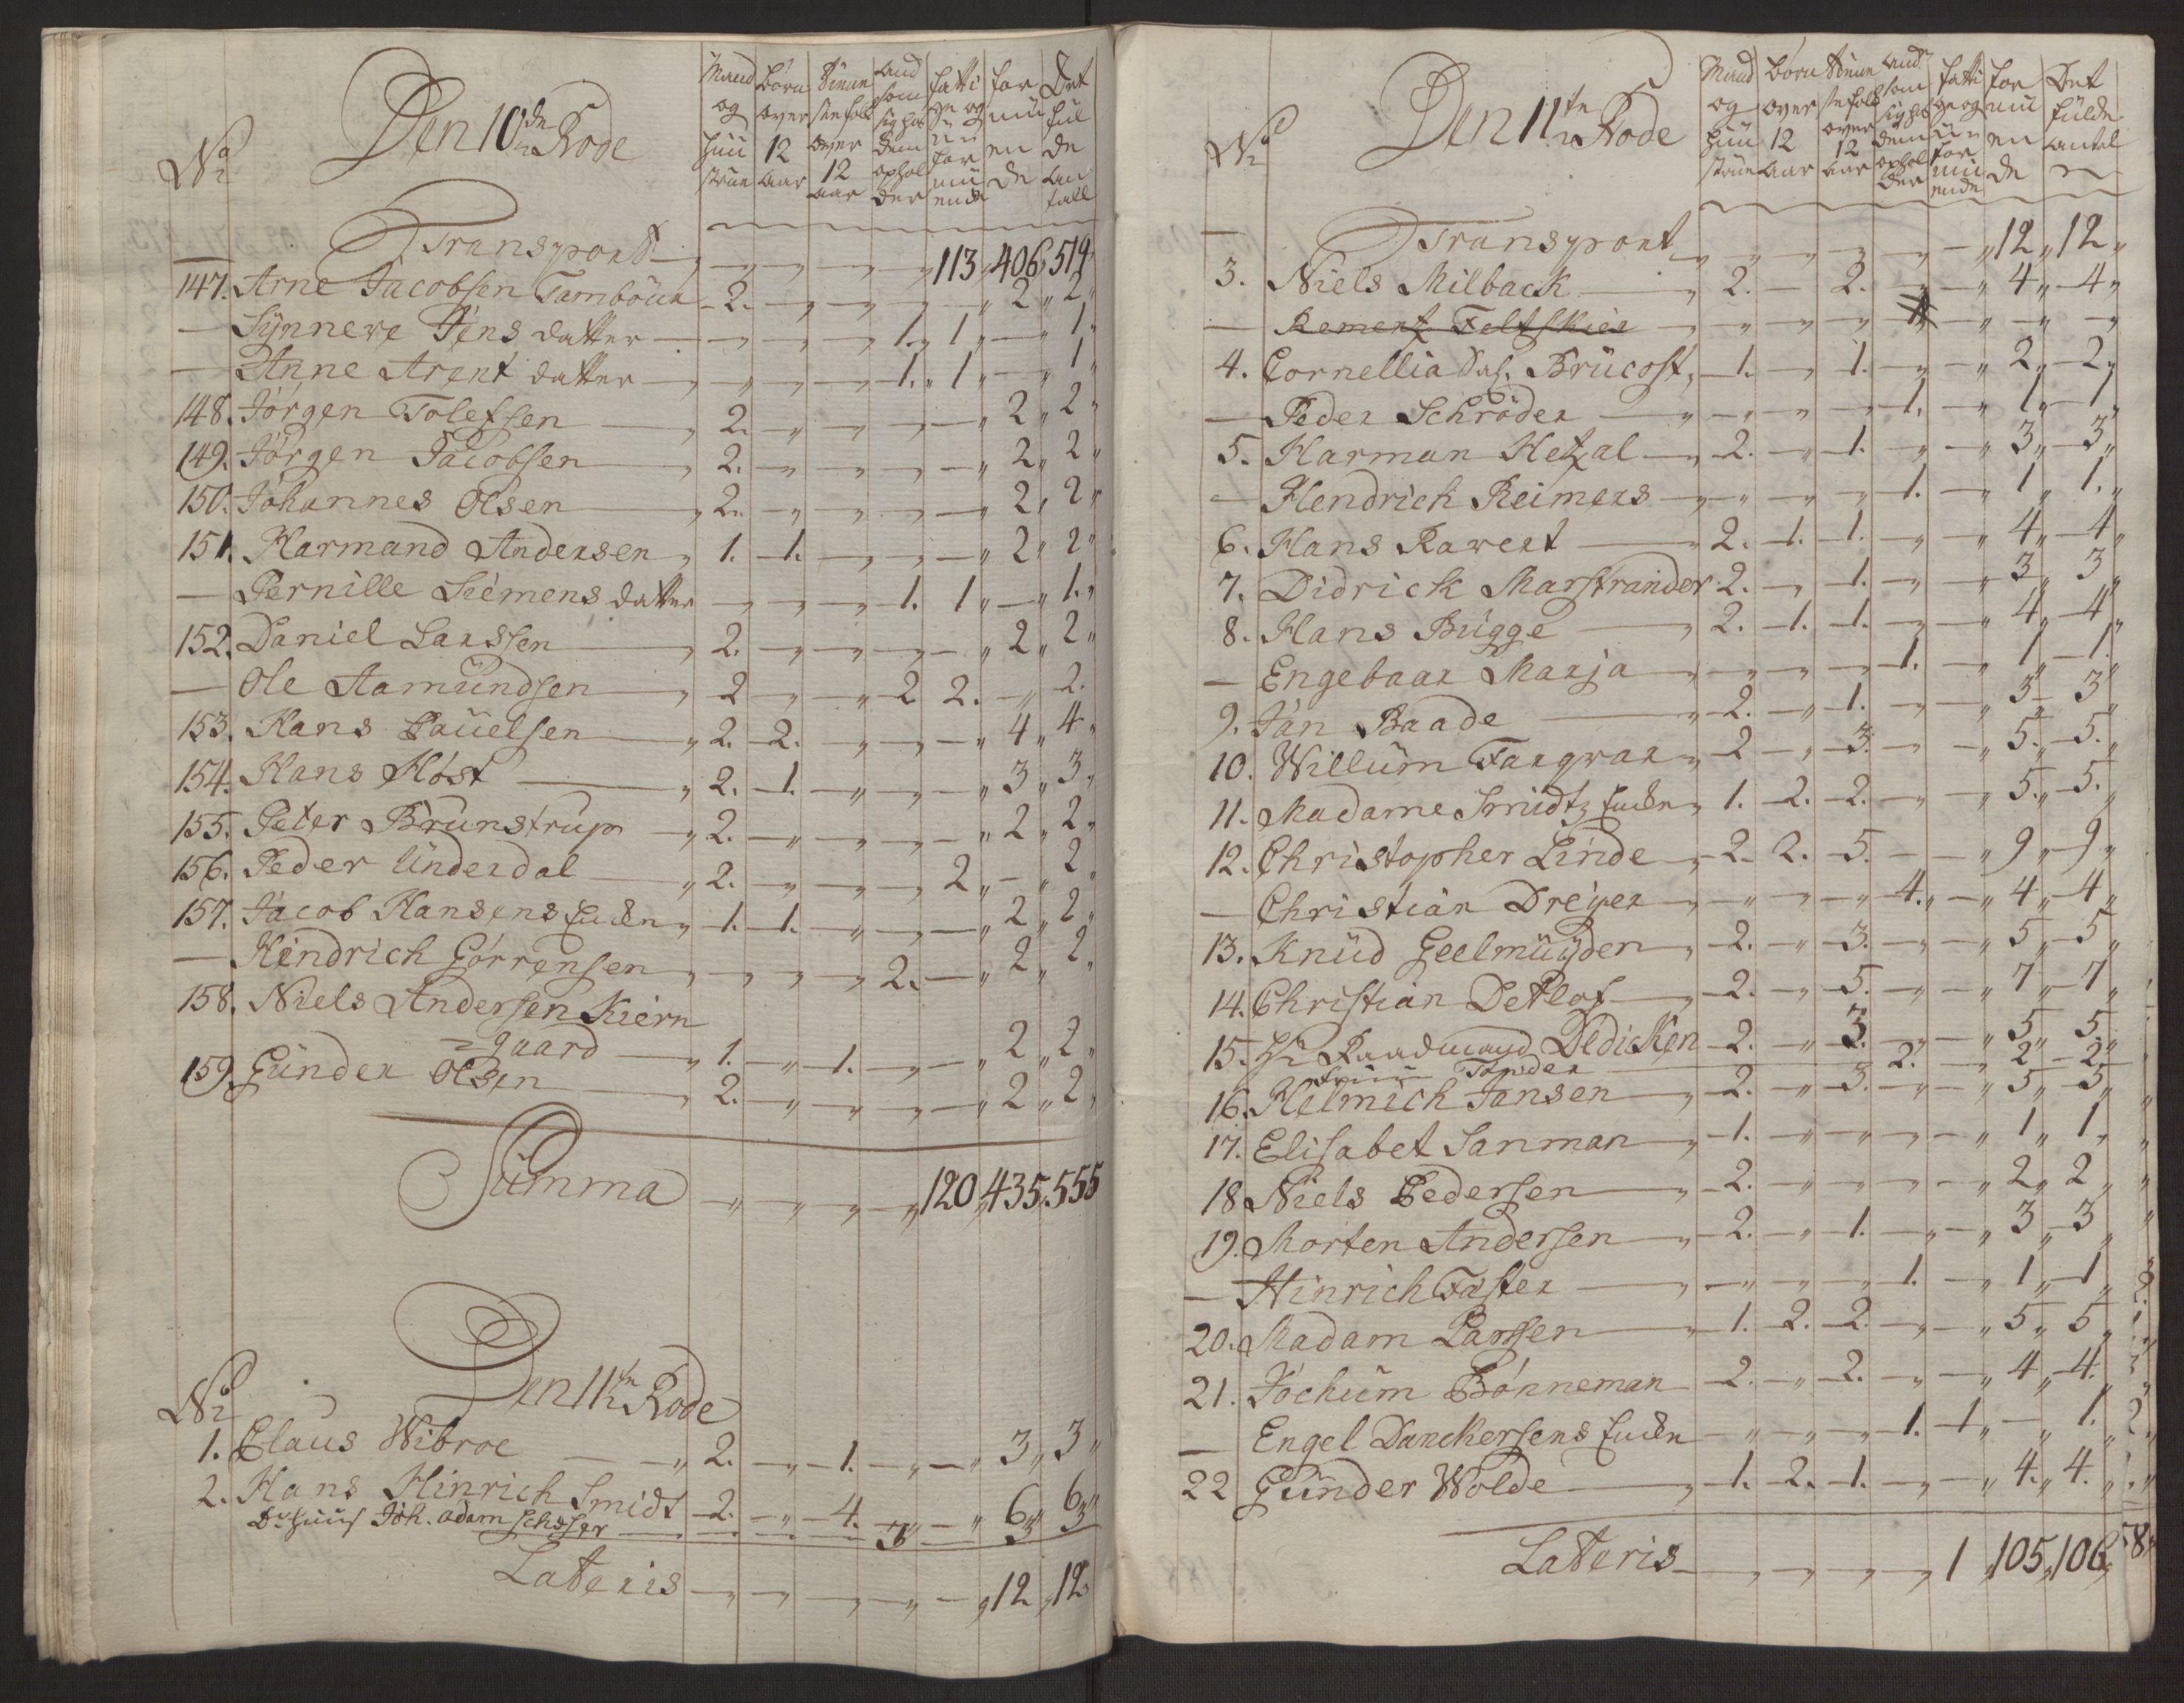 No Den 10de Rode
Mand og Huustrue
Børn over 12 aar
Tienneste folk over 12 aar
And som sig hos dem ophol der
fatti ge og U for mu ende
for mu en de
Det ful de an tall
Transport - - - - 113 406 519
147. Arne Jacobsen Tambour 2. - - - - 2 2
— Synneve Jens datter - - - 1. 1 - 1
— Anne Arent datter - - - 1. 1 - 1
148. Jørgen Tolefsen 2. - - - - 2 2
149. Jørgen Jacobsen 2. - - - - 2 2
150. Johannes Olsen 2. - - - - 2 2
151. Harmand Andersen 1. 1. - - - 2 2
— Pernille Siemens datter - - - 1. 1 - 1.
152. Daniel Larssen 2. - - - - 2 2
— Ole Aamundsen 2 - - 2 2. - 2.
153. Hans Pauelsen 2. 2. - - - 4 4
154. Hans Høst 2. 1. - - - 3 3
155. Peter Brunstrup 2. - - - - 2 2
156. Peder Underdal 2. - - - 2 - 2
157. Jacob Hansens Encken 1. 1. - - - 2 2
— Hendrich Gørrensen - - - 2. - 2 2
158. Niels Andersen Kiern
=gaard 1. - 1. - - 2 2
159. Gunder Olsen 2. - - - - 2 2
Summa - - - - 120 435 555
No Den 11te Rode
1. Claus Wibroe 2. - 1. - - 3 3
2. Hans Hinrich Smidt 2. - 4. - - 6 6
Dr Huus Joh. adam - - - 3 - 3 3
Lateris - - - - - 12 12
No Den 11te Rode
Mand og Huu strue
Børn over 12 aar
Tienne ste folk over 12 aar
And som sig hos dem ophol der
fatti ge og U for mu ende
for mu en de
Det fulde antal
Transport - - - - - 12 12
3. Niels Milback 2. - 2. - - 4 4
— Rementz Feltskier - - - - - - -
4. Cornellia Sal. Brucost 1. - 1. - - 2 2
— Peder Schrøder - - - 1. - 1 1
5. Harman Hetzal 2. - 1. - - 3 3
— Hendrich Reimers - - - 1. - 1 1.
6. Hans Rawert 2. 1. 1. - - 4 4
7. Didrick Marstrander 2. - 1. - - 3 3
8. Hans Bugge 2. 1. 1. - - 4 4
— Engebaar Marja - - - 1. - 1 1.
9. Jan Baade 2. - 1. - - 3 3
10. Willum Fargrar 2 - 3. - - 5. 5.
11. Madame Smidtz Encken 1. 2. 2. - - 5. 5.
12. Christopher Linde 2. 2. 5. - - 9 9
— Christian Dreyer - - - 4. - 4 4
13. Knud Geelmuyden 2. - 3. - - 5 5
14. Christian Detlof 2. - 5. - - 7 7
15. Hr Raadmand Dedicken 2. - 3. - - 5 5
2. - 2 2
16. Helmich Jansen 2. - 3. - - 5 5
17. Elisabet Sanman 1. - - - - 1 1
18 Niels Pedersen 2. - - - - 2 2
19. Morten Andersen 2. - 1. - - 3 3
— Hinrich Faster - - - 1. - 1 1
20. Madam Larssen 1. 2. 2. - - 5 5
21. Jochum Bønneman 2. - 2. - - 4 4.
— Engel Danckersens Encken - - - 1. 1 - 1.
22 Gunder Wolde 1. 2. 1. - - 4. 4.
Lateris - - - - 1 105 106